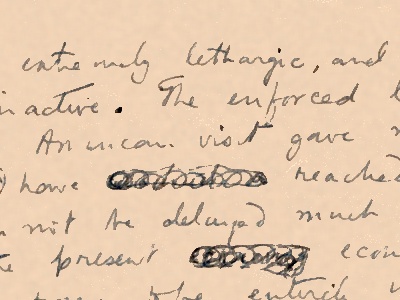 extremely lethargic, and
inactive. The enforced
American visit gave
have reached
not be delayed much
present econ
the entire